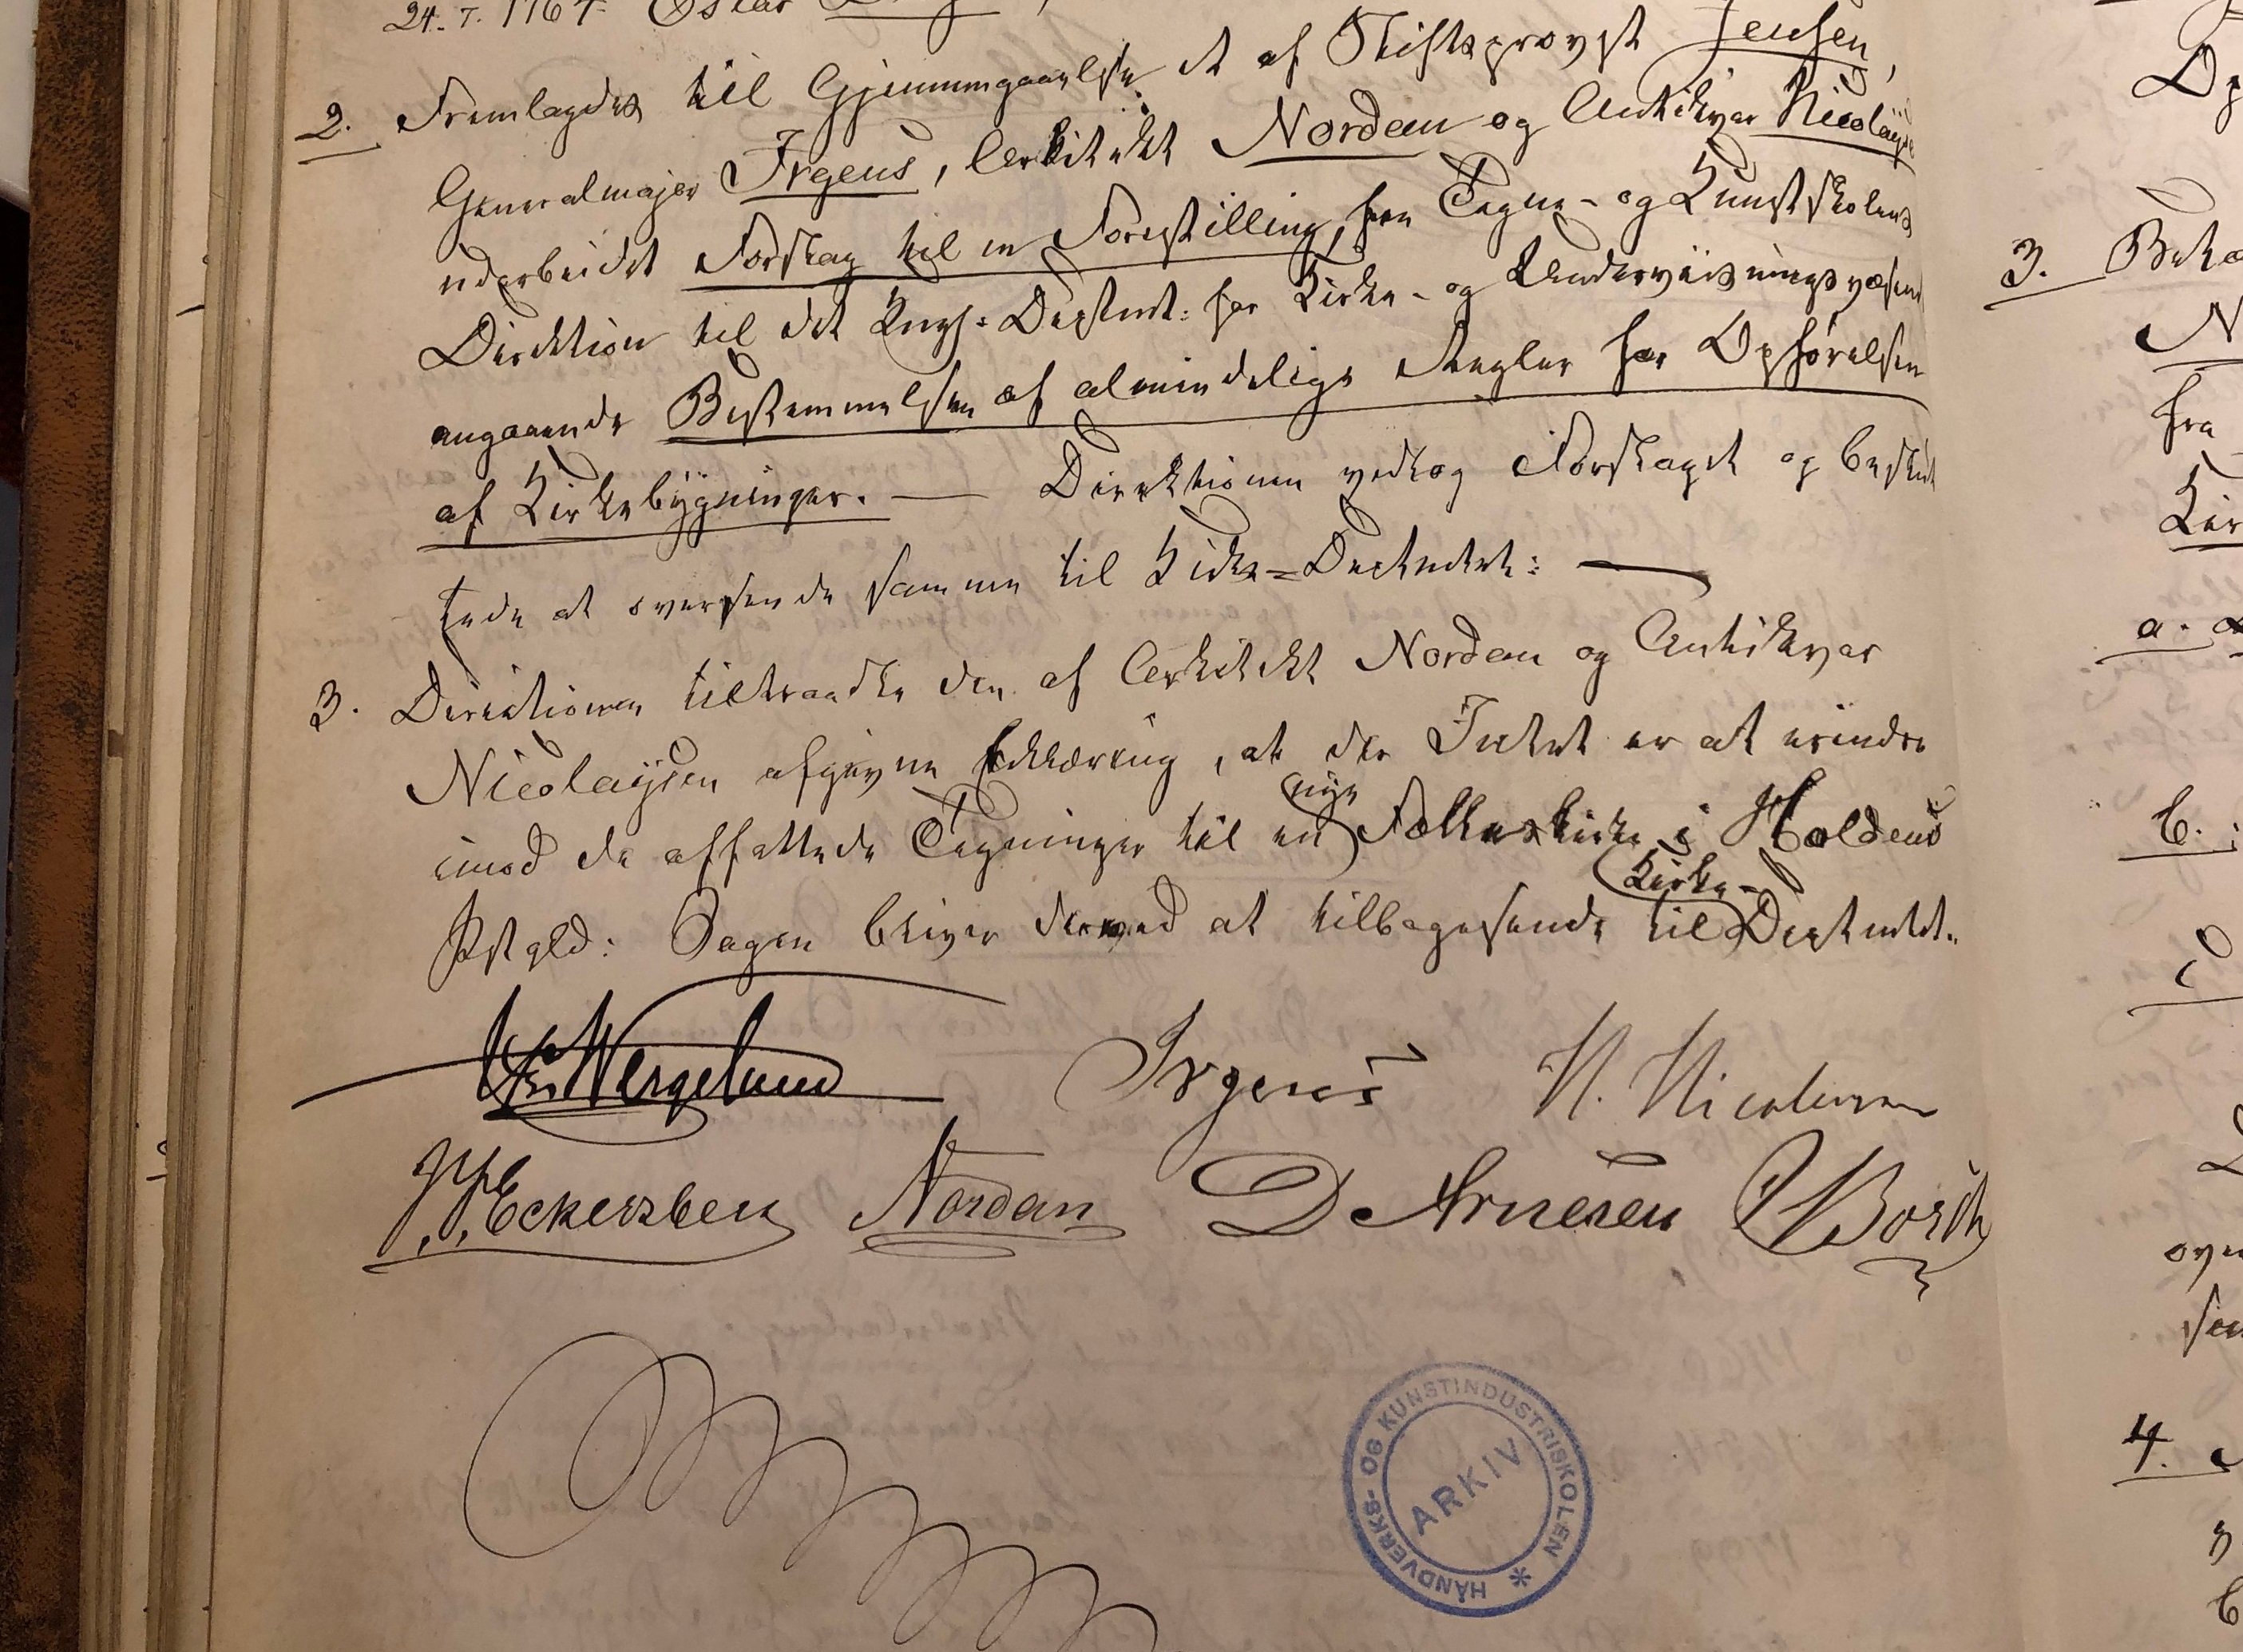 24. 7. 1764 Oskar
2. Fremlagdes til Gjennemgaaelse et af Stiftsprovst Jensen,
Generalmajor Irgens, Arkitekt Nordan og Antikvar Nicolaysen
udarbeidet Forslag til en Forestilling fra Tegne- og Kunstskolens
Direktion til det Kngl: Deptmt: for Kirke- og Underviisningsvæsenet
angaaende Bestemmelsen af almindelige Regler for Opførelsen
af Kirkebygninger. — Direktionen vedtog Forslaget og beslut
tede at oversende samme til Kirke=Deptmtet: —
3. Direktionen tiltraadte den af Arkitekt Nordan og Antikvar
Nicolaysen afgivne Erklæring, at der Intet er at erindre
nye
imod de affattede Tegninger til en Fælleskirke i Holdens
Kirke-
Pstgld: Sagen bliver dermed at tilbagesende til Deptmtet.
Wergeland Irgens N. Nicolaysen
J. F. Eckersberg Nordan D Arnesen Borch
HÅNDVERKS- OG KUNSTINDUSTRISKOLEN
ARKIV
3.
N
fra
Kir
a.
b.
4.